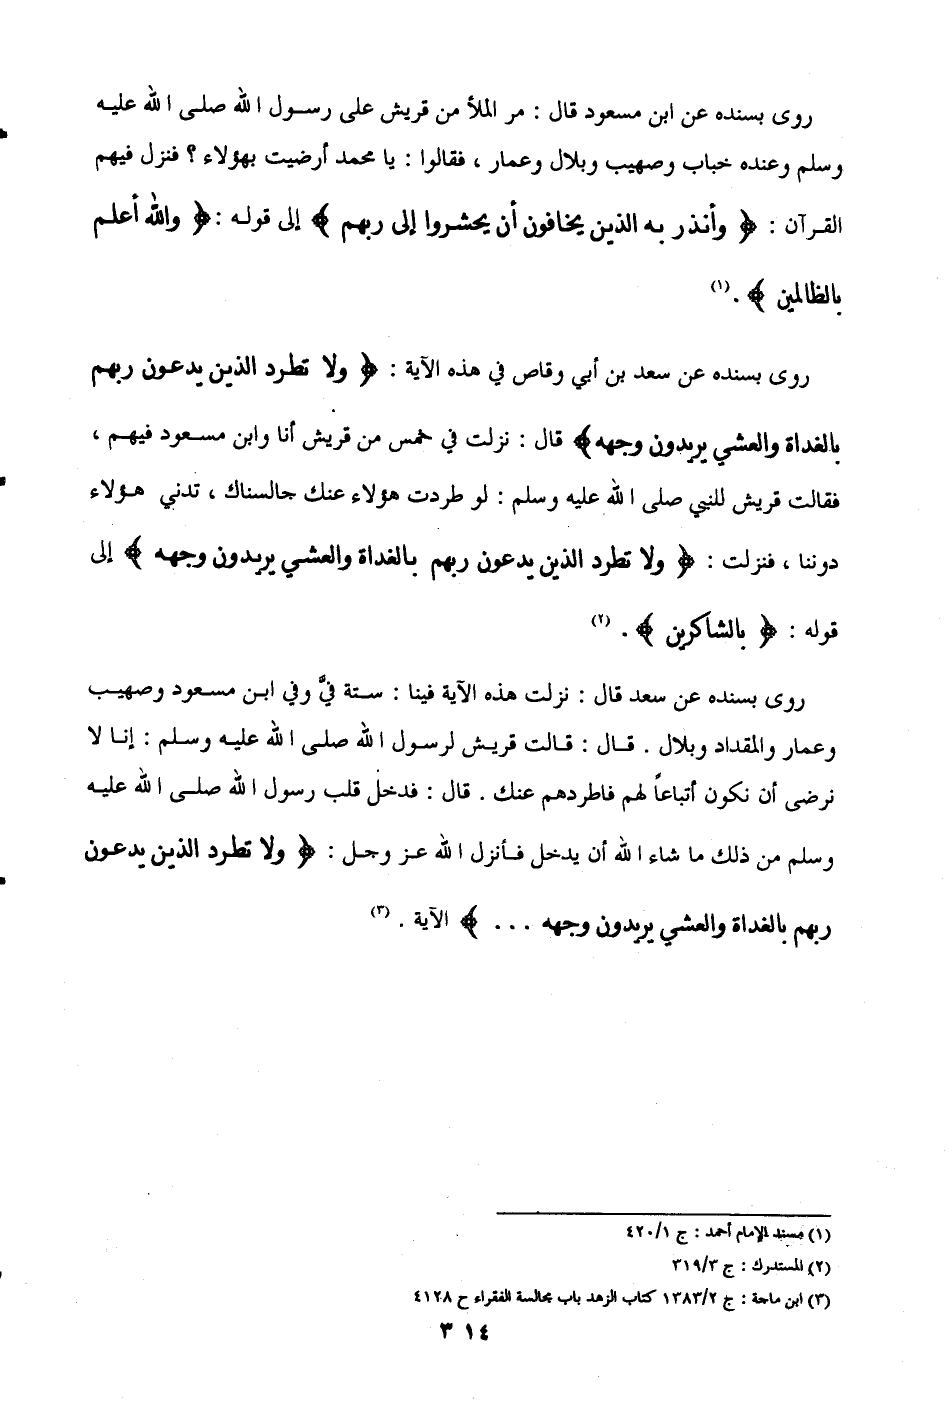 روى بسنده عن ابن مسعود قال : مر الملأ من قريش على رسول الله صلى الله عليه
وسلم وعنده خباب وصهيب وبلال وعمار ، فقالوا : يا محمد أرضيت بهؤلاء ؟ فنزل فيهم
القرآن : ﴿ وأنذر به الذين يخافون أن يحشروا إلى ربهم ﴾ إلى قوله : ﴿ والله أعلم
بالظالمين ﴾ . (١)
روى بسنده عن سعد بن أبي وقاص في هذه الآية : ﴿ ولا تطرد الذين يدعون ربهم
بالغداة والعشي يريدون وجهه ﴾ قال : نزلت في خمس من قريش أنا وابن مسعود فيهم ،
فقالت قريش للنبي صلى الله عليه وسلم : لو طردت هؤلاء عنك جالسناك ، تدني هؤلاء
دوننا ، فنزلت : ﴿ ولا تطرد الذين يدعون ربهم بالغداة والعشي يريدون وجهه ﴾ إلى
قوله : ﴿ بالشاكرين ﴾ . (٢)
روى بسنده عن سعد قال : نزلت هذه الآية فينا : ستة فيَّ وفي ابن مسعود وصهيب
وعمار والمقداد وبلال . قال : قالت قريش لرسول الله صلى الله عليه وسلم : إنا لا
نرضى أن نكون أتباعاً لهم فاطردهم عنك . قال : فدخل قلب رسول الله صلى الله عليه
وسلم من ذلك ما شاء الله أن يدخل فأنزل الله عز وجل : ﴿ ولا تطرد الذين يدعون
ربهم بالغداة والعشي يريدون وجهه ... ﴾ الآية . (٣)
(١) مسند الإمام أحمد : ج ٤٢٠/١
(٢) المستدرك : ج ٣١٩/٣
(٣) ابن ماجة : ج ١٣٨٣/٢ كتاب الزهد باب مجالسة الفقراء ح ٤١٢٨
٣١٤